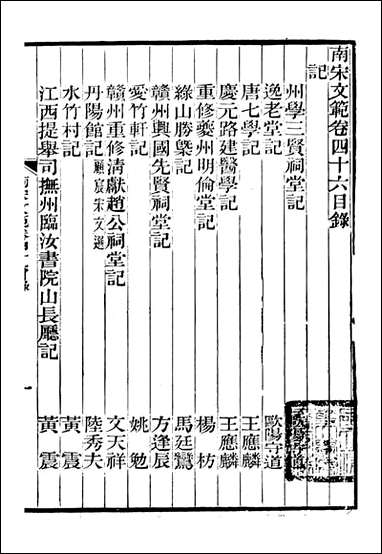 南宋文範卷四十六目錄
記
州學三賢祠堂記
逸老堂記 歐陽守道
唐七學記 王應麟
慶元路建醫學記 王應麟
重修夔州明倫堂記 楊枋
綠山勝槩記 馬廷鸞
贛州興國先賢祠堂記 方逢辰
愛竹軒記 姚勉
贛州重修清獻趙公祠堂記 文天祥
丹陽館記 顧宸宋文選 陸秀夫
水竹村記 黃震
江西提舉司撫州臨汝書院山長廳記 黃震